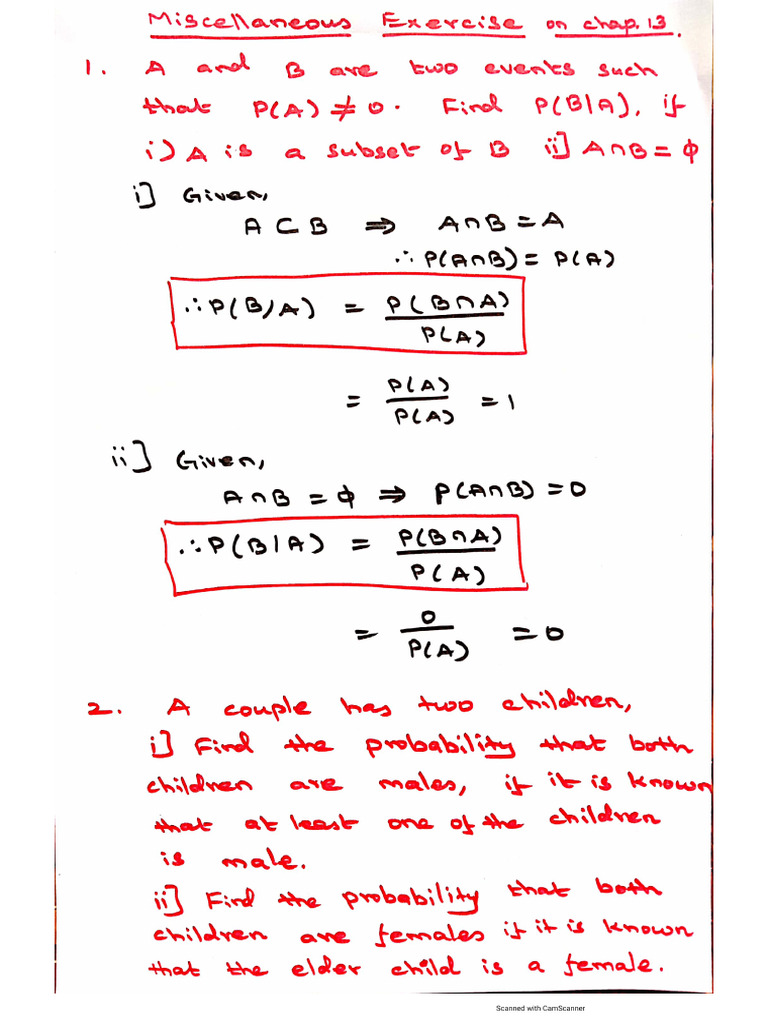 Miscellaneous Exercise on chap. 13.
1. A and B are two events such
that P(A) ≠ 0. Find P(B|A), if
i) A is a subset of B ii] A∩B = φ
i] Given,
A ⊂ B ⇒ A∩B = A
∴ P(A∩B) = P(A)
∴ P(B/A) = P(B∩A)
P(A)
= P(A) = 1
P(A)
ii] Given,
A∩B = φ ⇒ P(A∩B) = 0
∴ P(B|A) = P(B∩A)
P(A)
= 0 = 0
P(A)
2. A couple has two children,
i] Find the probability that both
children are males, if it is known
that at least one of the children
is male.
ii] Find the probability that both
children are females if it is known
that the elder child is a female.
Scanned with CamScanner